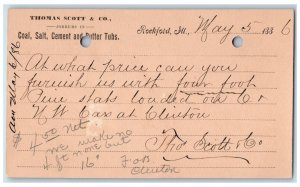 THOMAS SCOTT & CO.,
JOBBERS IN
Coal, Salt, Cement and Butter Tubs.
Rockford, Ill., May 5 1886
At what price can you
furnish us with four foot
Pine slabs loaded on C &
N W Cars at Clinton
Thos Scott & Co
Ans May 6/86
4.00 Net
we make no
4 ft none but
16"
FOB
Clinton